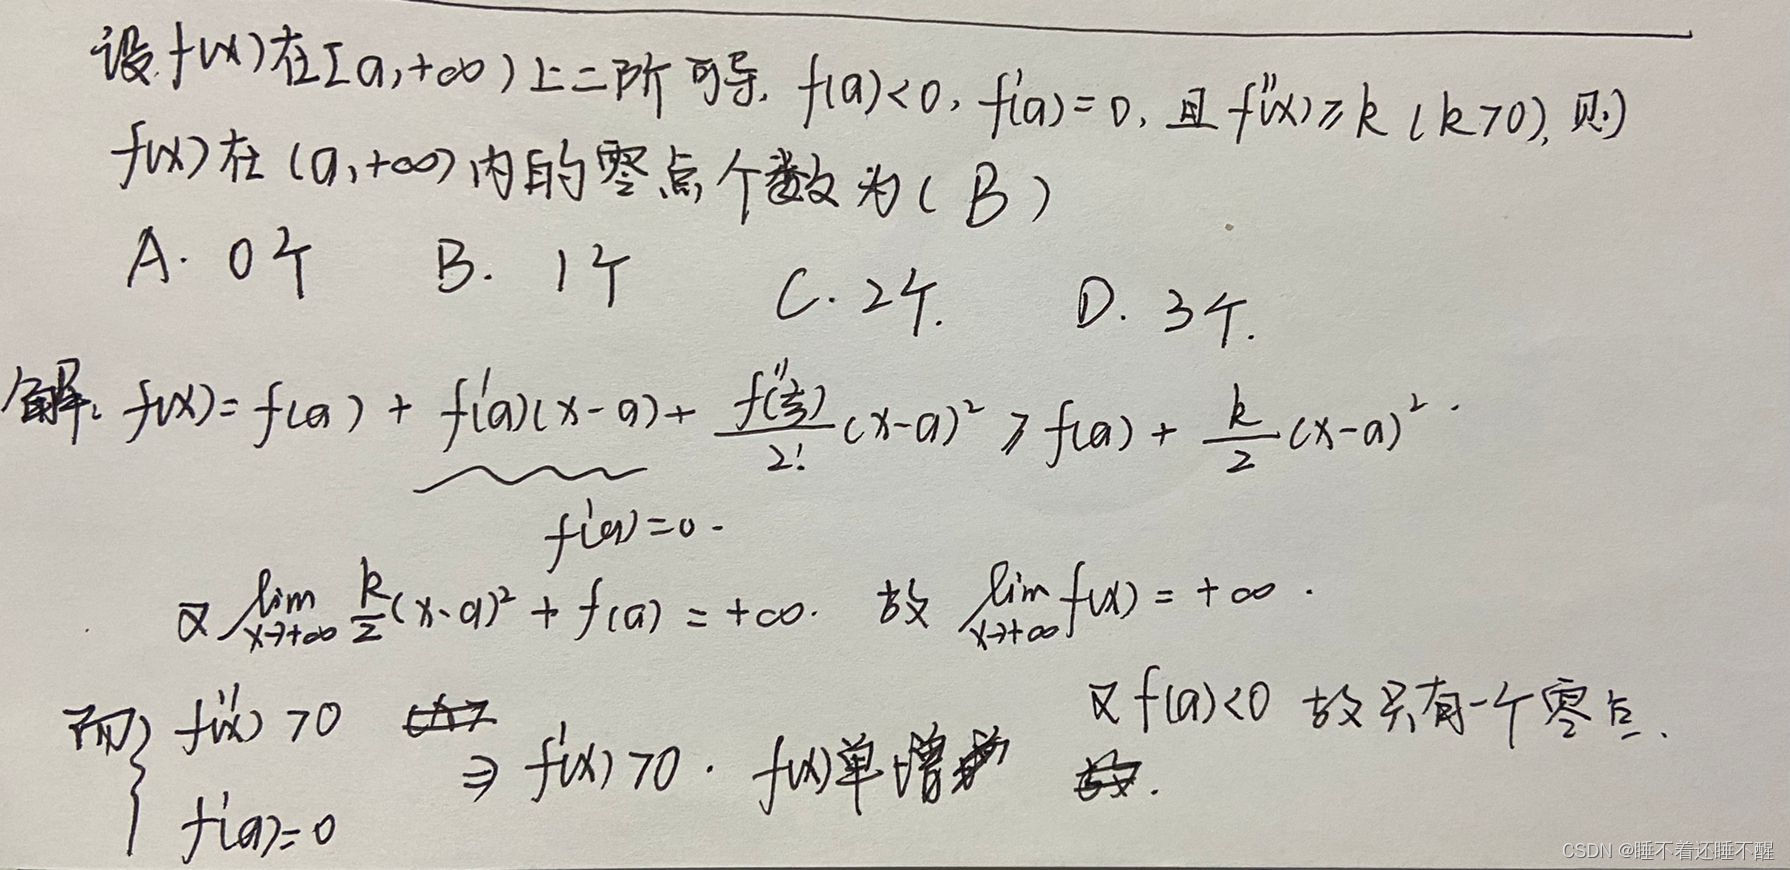 设f(x)在[a,+∞)上二阶可导, f(a)<0, f'(a)=0, 且f''(x)≥k(k>0), 则
f(x)在(a,+∞)内的零点个数为(B)
A. 0个 B. 1个 C. 2个. D. 3个.
解: f(x)=f(a)+f'(a)(x-a)+\frac{f''(ξ)}{2!}(x-a)²≥f(a)+\frac{k}{2}(x-a)².
f'(a)=0.
又 lim_{x→+∞} \frac{k}{2}(x-a)²+f(a)=+∞. 故 lim_{x→+∞} f(x)=+∞.
而{ f''(x)>0
f'(a)=0
⇒ f'(x)>0. f(x)单增
又f(a)<0 故只有一个零点.
CSDN @睡不着还睡不醒